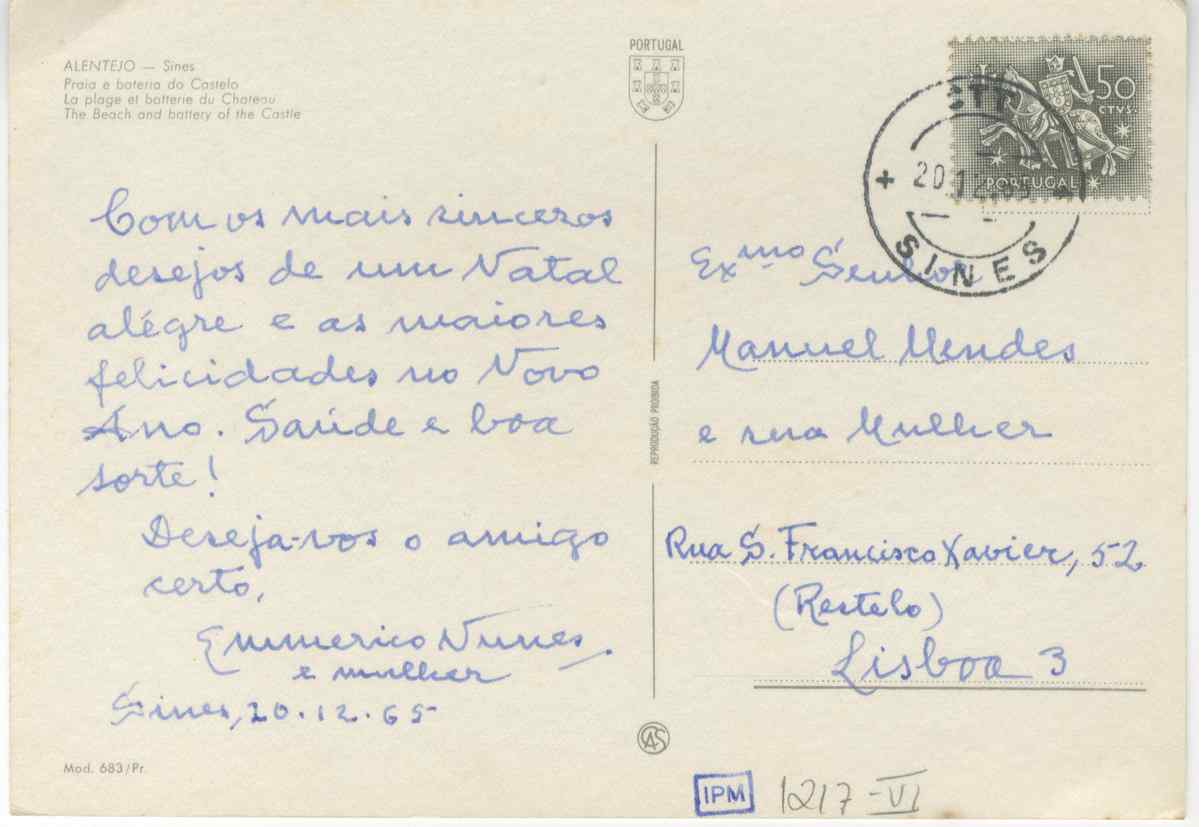 ALENTEJO — Sines
Praia e bateria do Castelo
La plage et batterie du Chateau
The Beach and battery of the Castle
Com os mais sinceros
desejos de um Natal
alégre e as maiores
felicidades no Novo
Ano. Saúde e boa
sorte!
Deseja-vos o amigo
certo,
Emmerico Nunes.
e mulher
Sines, 20.12.65
Mod. 683/Pr.
PORTUGAL
REPRODUÇÃO PROIBIDA
CAS
50
CTVS.
PORTUGAL
CTT
20.12
SINES
Exmo Senhor
Manuel Mendes
e sua Mulher
Rua S. Francisco Xavier, 52
(Restelo)
Lisboa 3
IPM 1217-VI